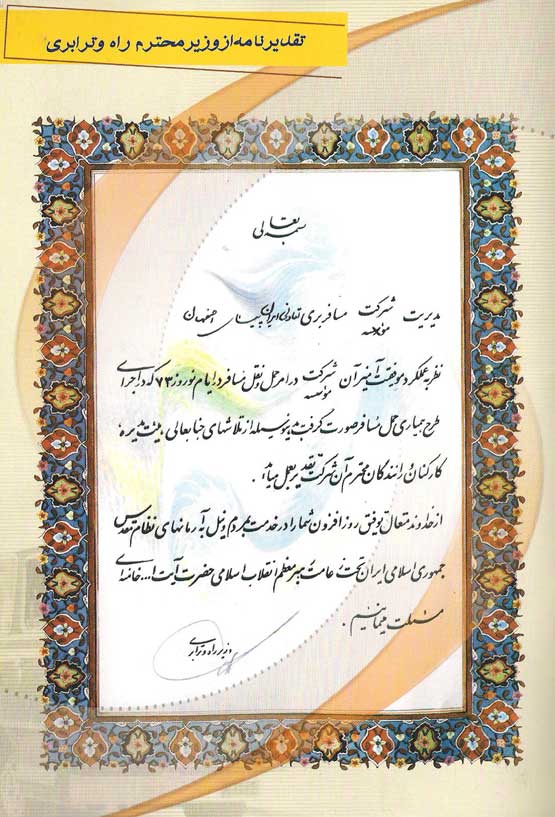 تقدیرنامه از وزیر محترم راه و ترابری
بسمه تعالی
مدیریت شرکت مسافربری تعاونی ایران پیمای اصفهان
موسسه
نظر به عملکرد موفقیت آمیز آن شرکت در امر حمل و نقل مسافر در ایام نوروز ۷۳ که در اجرای
موسسه
طرح بسیاری حمل مسافر صورت گرفت بدینوسیله از تلاشهای جنابعالی، هیئت مدیره،
کارکنان و رانندگان محترم آن شرکت تقدیر بعمل میاید.
از خداوند متعال توفیق روز افزون شما را در خدمت به مردم و نیل به آرمانهای نظام مقدس
جمهوری اسلامی ایران تحت زعامت رهبر معظم انقلاب اسلامی حضرت آیت ا... خامنه‌ای
مسئلت مینمائیم.
وزیر راه و ترابری